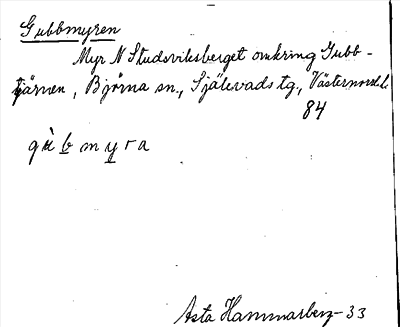 Gubbmyren
Myr N Studsviksberget omkring Gubb-
tjärnen, Björna sn., Själevads tg., Västernorrl. l.
84
gùbmyra
Asta Hammarberg-33